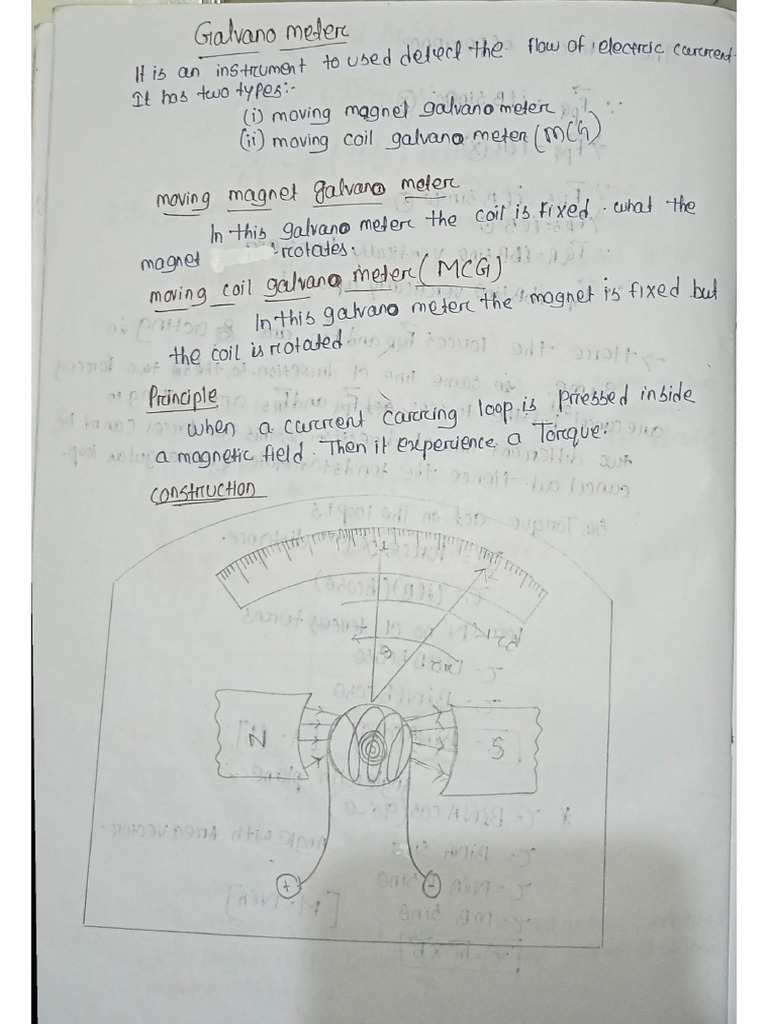 Galvano meter
It is an instrument to used detect the flow of electric current.
It has two types:-
(i) moving magnet galvano meter
(ii) moving coil galvano meter (MCG)
moving magnet galvano meter
In this galvano meter the coil is fixed. what the
magnet rotates.
moving coil galvano meter (MCG)
In this galvano meter the magnet is fixed but
the coil is rotated
Principle
when a current carring loop is pressed inside
a magnetic field. Then it experience a Torque.
construction
N
S
+
-